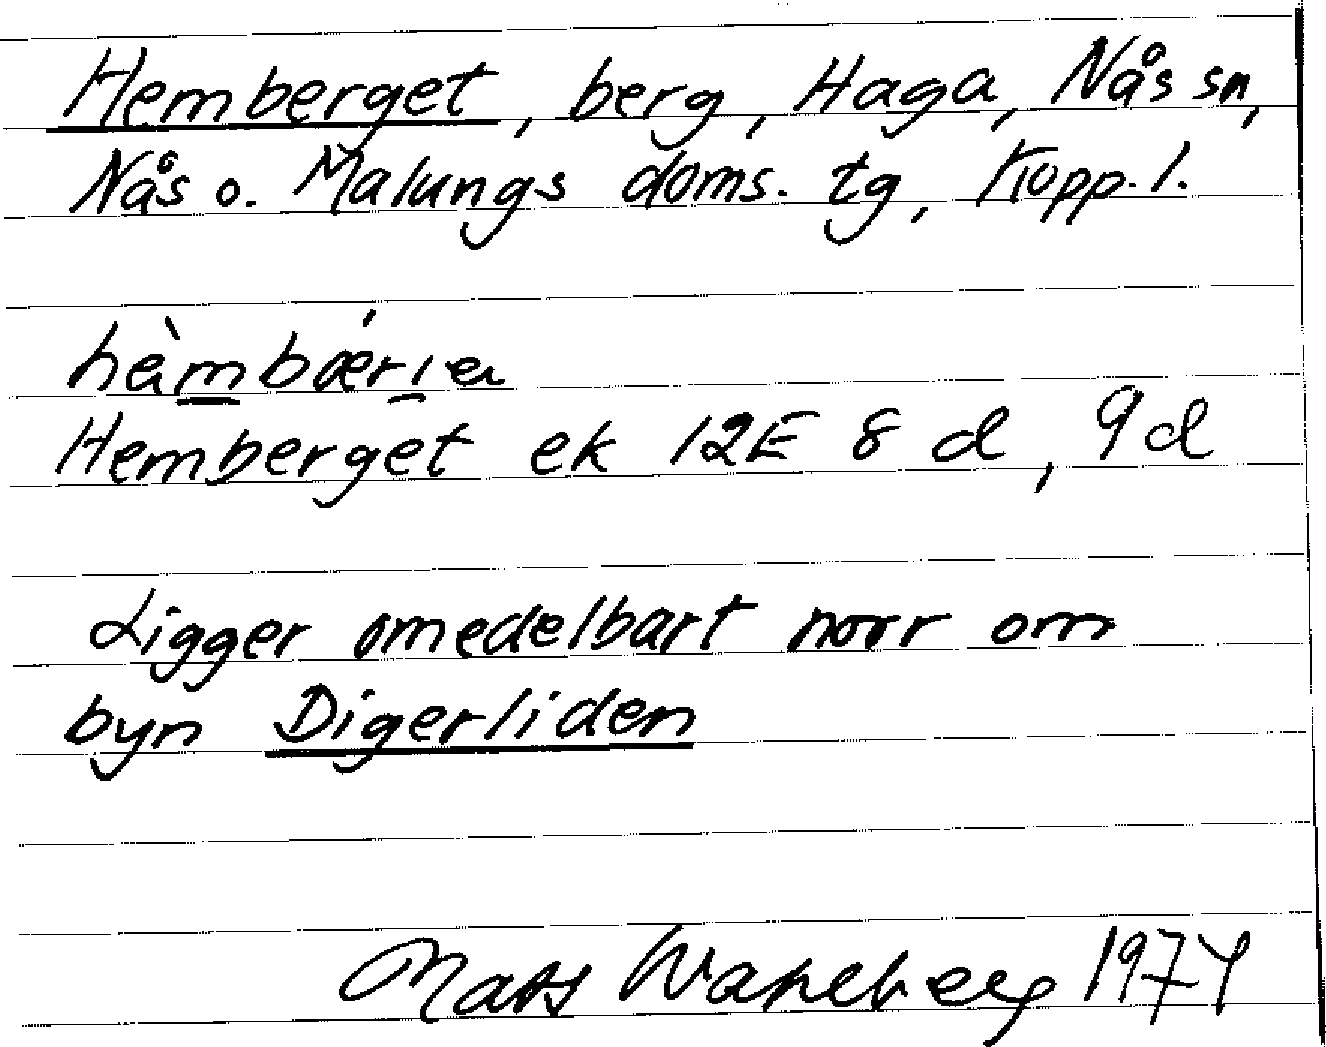 Hemberget, berg, Haga, Nås sn,
Nås o. Malungs doms. tg, Kopp. l.
Hemberget ek 12E 8 d, 9d
Ligger omedelbart norr om
byn Digerliden
Mats Wahlberg 1974